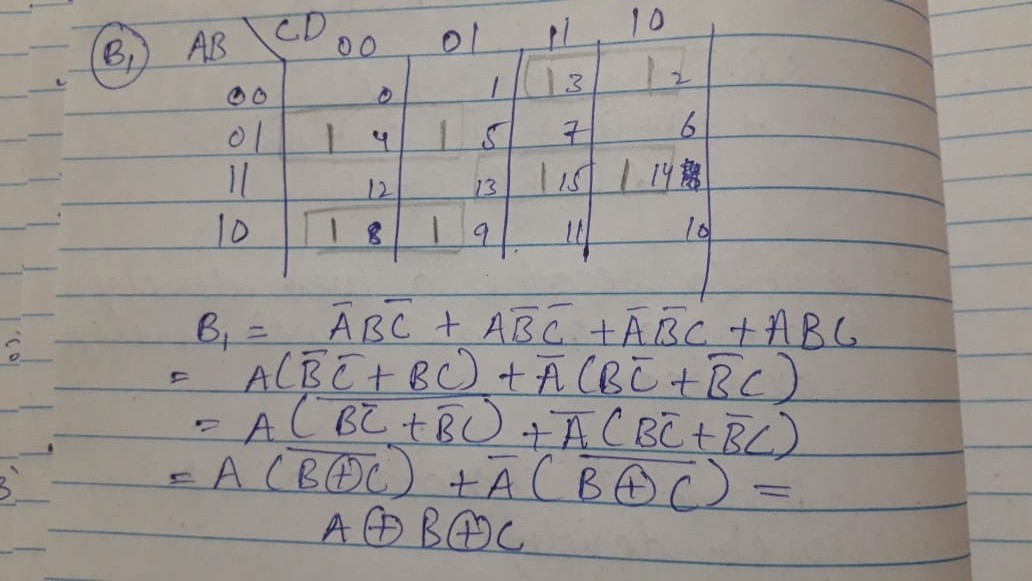 B₁ AB \ CD 00 01 11 10
00 0 1 1 3 1 2
01 1 4 1 5 7 6
11 12 13 1 15 1 14
10 1 8 1 9 11 10
B₁ = A̅BC̅ + AB̅C̅ + A̅B̅C + ABC
= A(B̅C̅ + BC) + A̅(BC̅ + B̅C)
= A(\overline{BC̅ + B̅C}) + A̅(BC̅ + B̅C)
= A(\overline{B⊕C}) + A̅(\overline{B⊕C}) =
A⊕B⊕C